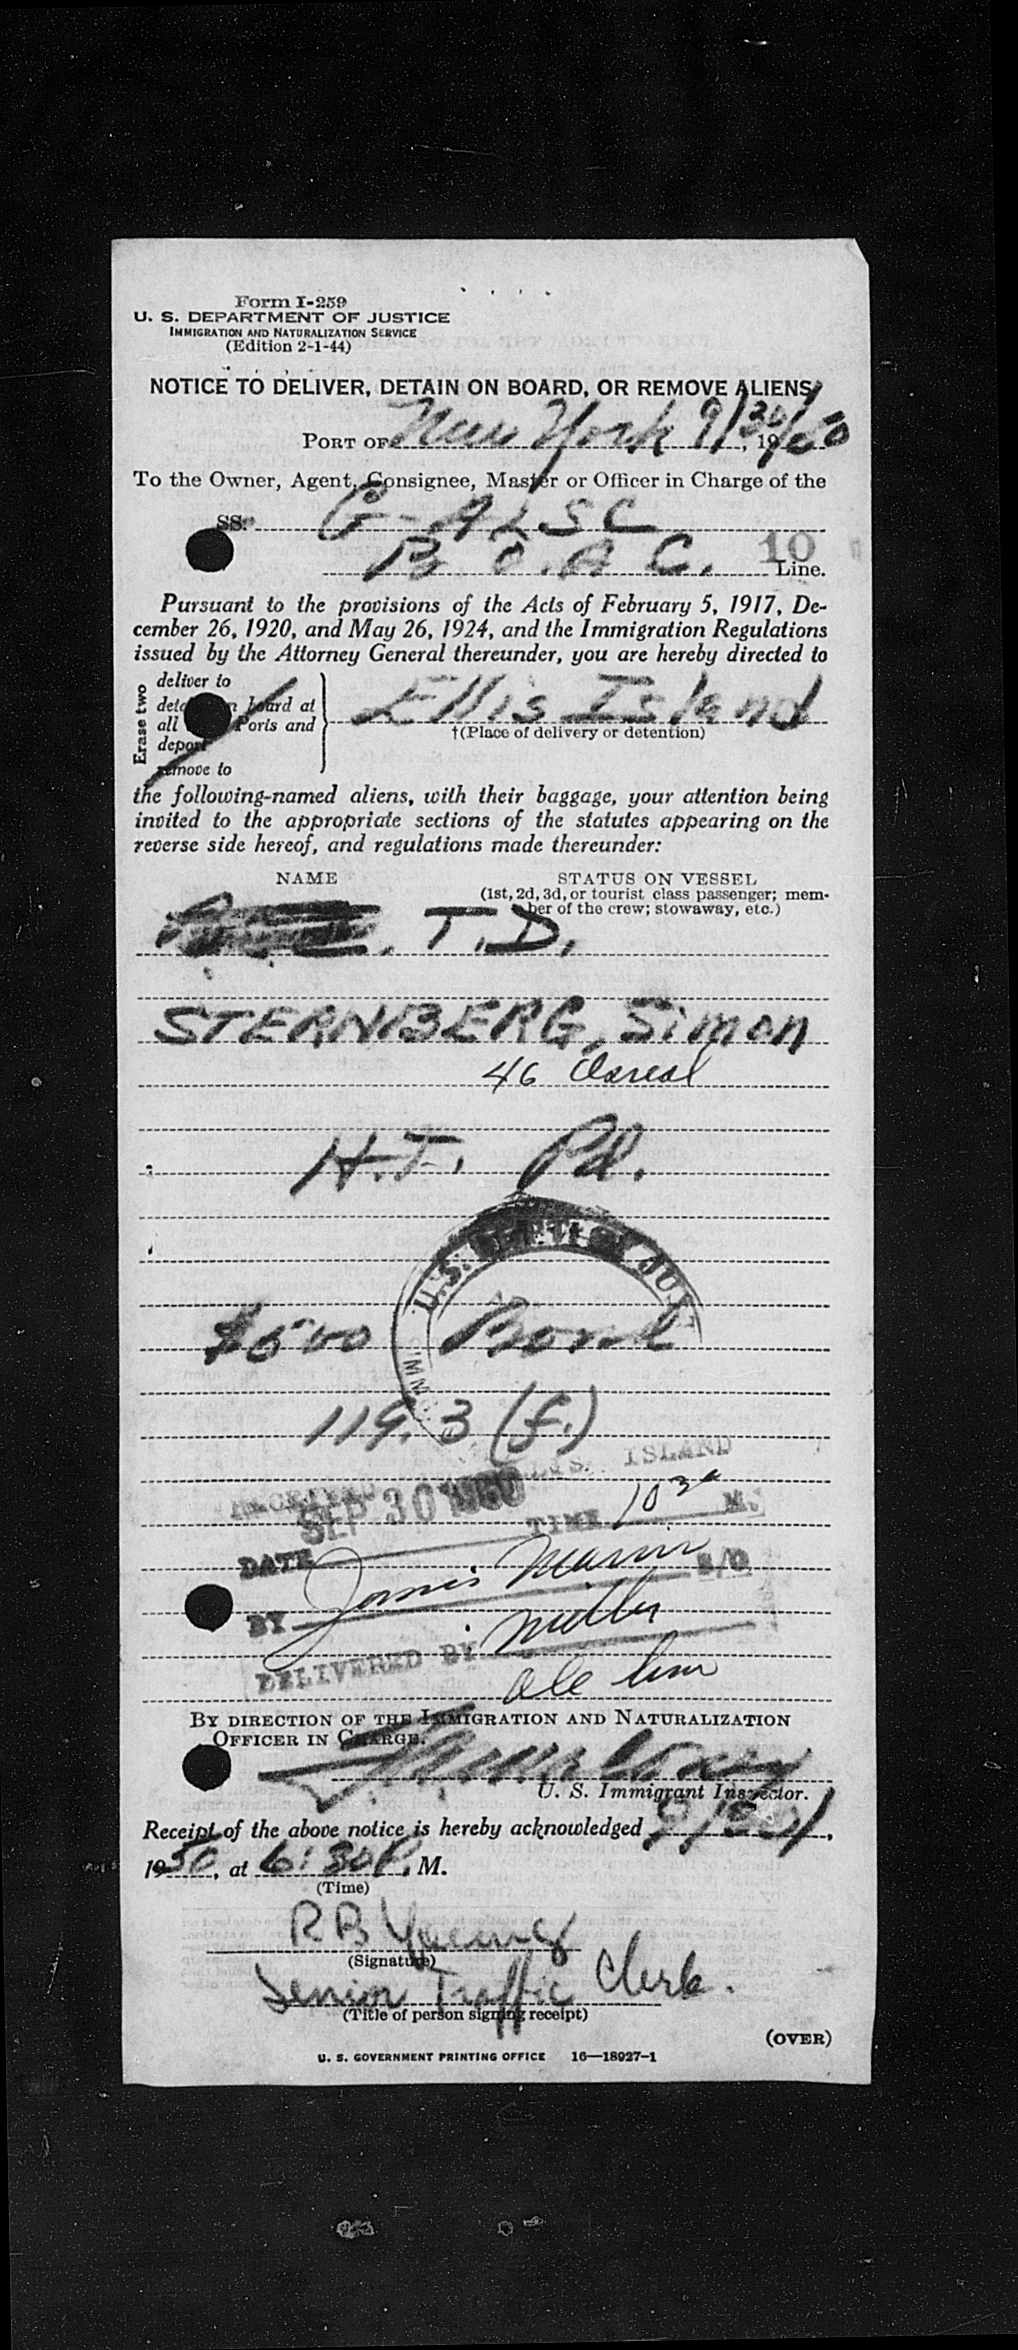 Form I-259
U. S. DEPARTMENT OF JUSTICE
IMMIGRATION AND NATURALIZATION SERVICE
(Edition 2-1-44)
NOTICE TO DELIVER, DETAIN ON BOARD, OR REMOVE ALIENS
PORT OF New York 9/30, 19 50
To the Owner, Agent, Consignee, Master or Officer in Charge of the
SS. G-ALSC
B.O.A.C. 10 Line.
Pursuant to the provisions of the Acts of February 5, 1917, De-
cember 26, 1920, and May 26, 1924, and the Immigration Regulations
issued by the Attorney General thereunder, you are hereby directed to
Erase two
deliver to
board at
all Ports and
deport
remove to
Ellis Island
†(Place of delivery or detention)
the following-named aliens, with their baggage, your attention being
invited to the appropriate sections of the statutes appearing on the
reverse side hereof, and regulations made thereunder:
NAME STATUS ON VESSEL
(1st, 2d, 3d, or tourist class passenger; mem-
ber of the crew; stowaway, etc.)
T.D.
STERNBERG, Simon
46
H.T. Pd.
U.S. DEPT. OF JUST
$500 Bond
119.3 (f.)
RECEIVED ELLIS ISLAND
SEP 30 1950
DATE TIME 10 30 M.
BY James S/O
DELIVERED BY Miller
BY DIRECTION OF THE IMMIGRATION AND NATURALIZATION
OFFICER IN CHARGE.
U. S. Immigrant Inspector.
Receipt of the above notice is hereby acknowledged 9/30,
19 50, at 6:30 P. M.
(Time)
R B Young
(Signature)
Senior Traffic Clerk.
(Title of person signing receipt)
(OVER)
U. S. GOVERNMENT PRINTING OFFICE 16—18927-1